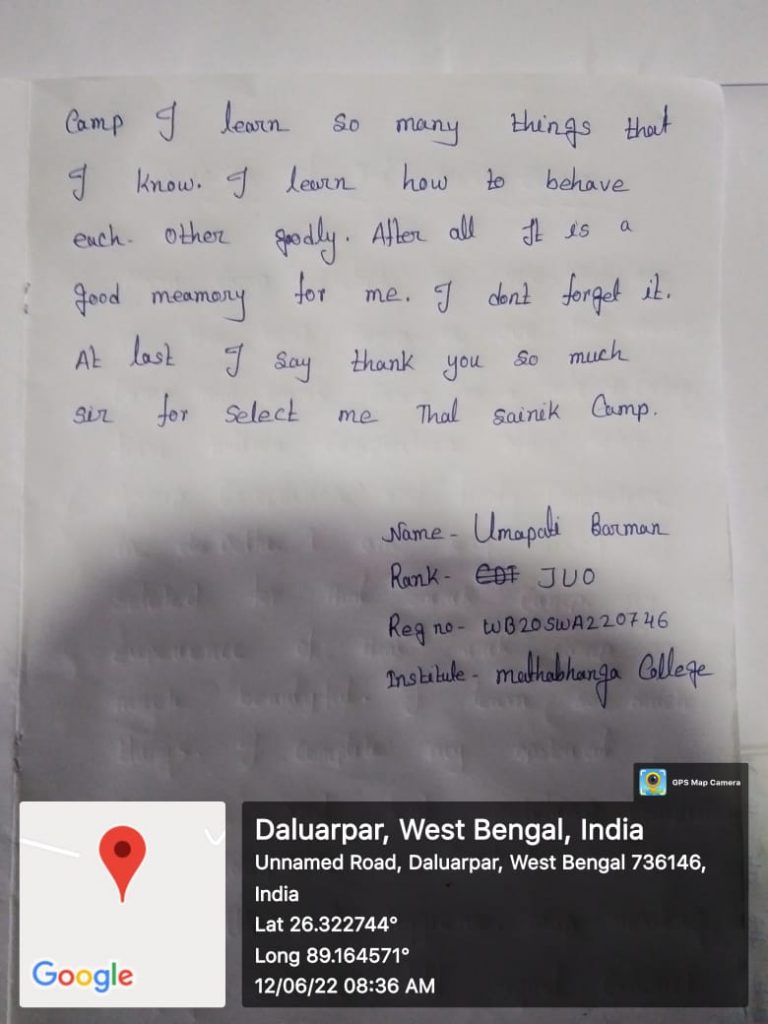 Camp I learn so many things that
I know. I learn how to behave
each other goodly. After all It is a
good meamory for me. I dont forget it.
At last I say thank you so much
sir for select me Thal Sainik Camp.
Name - Umapati Barman
Rank - CDT JUO
Reg no - WB20SWA220746
Institute - mathabhanga College
GPS Map Camera
Daluarpar, West Bengal, India
Unnamed Road, Daluarpar, West Bengal 736146,
India
Lat 26.322744°
Long 89.164571°
12/06/22 08:36 AM
Google